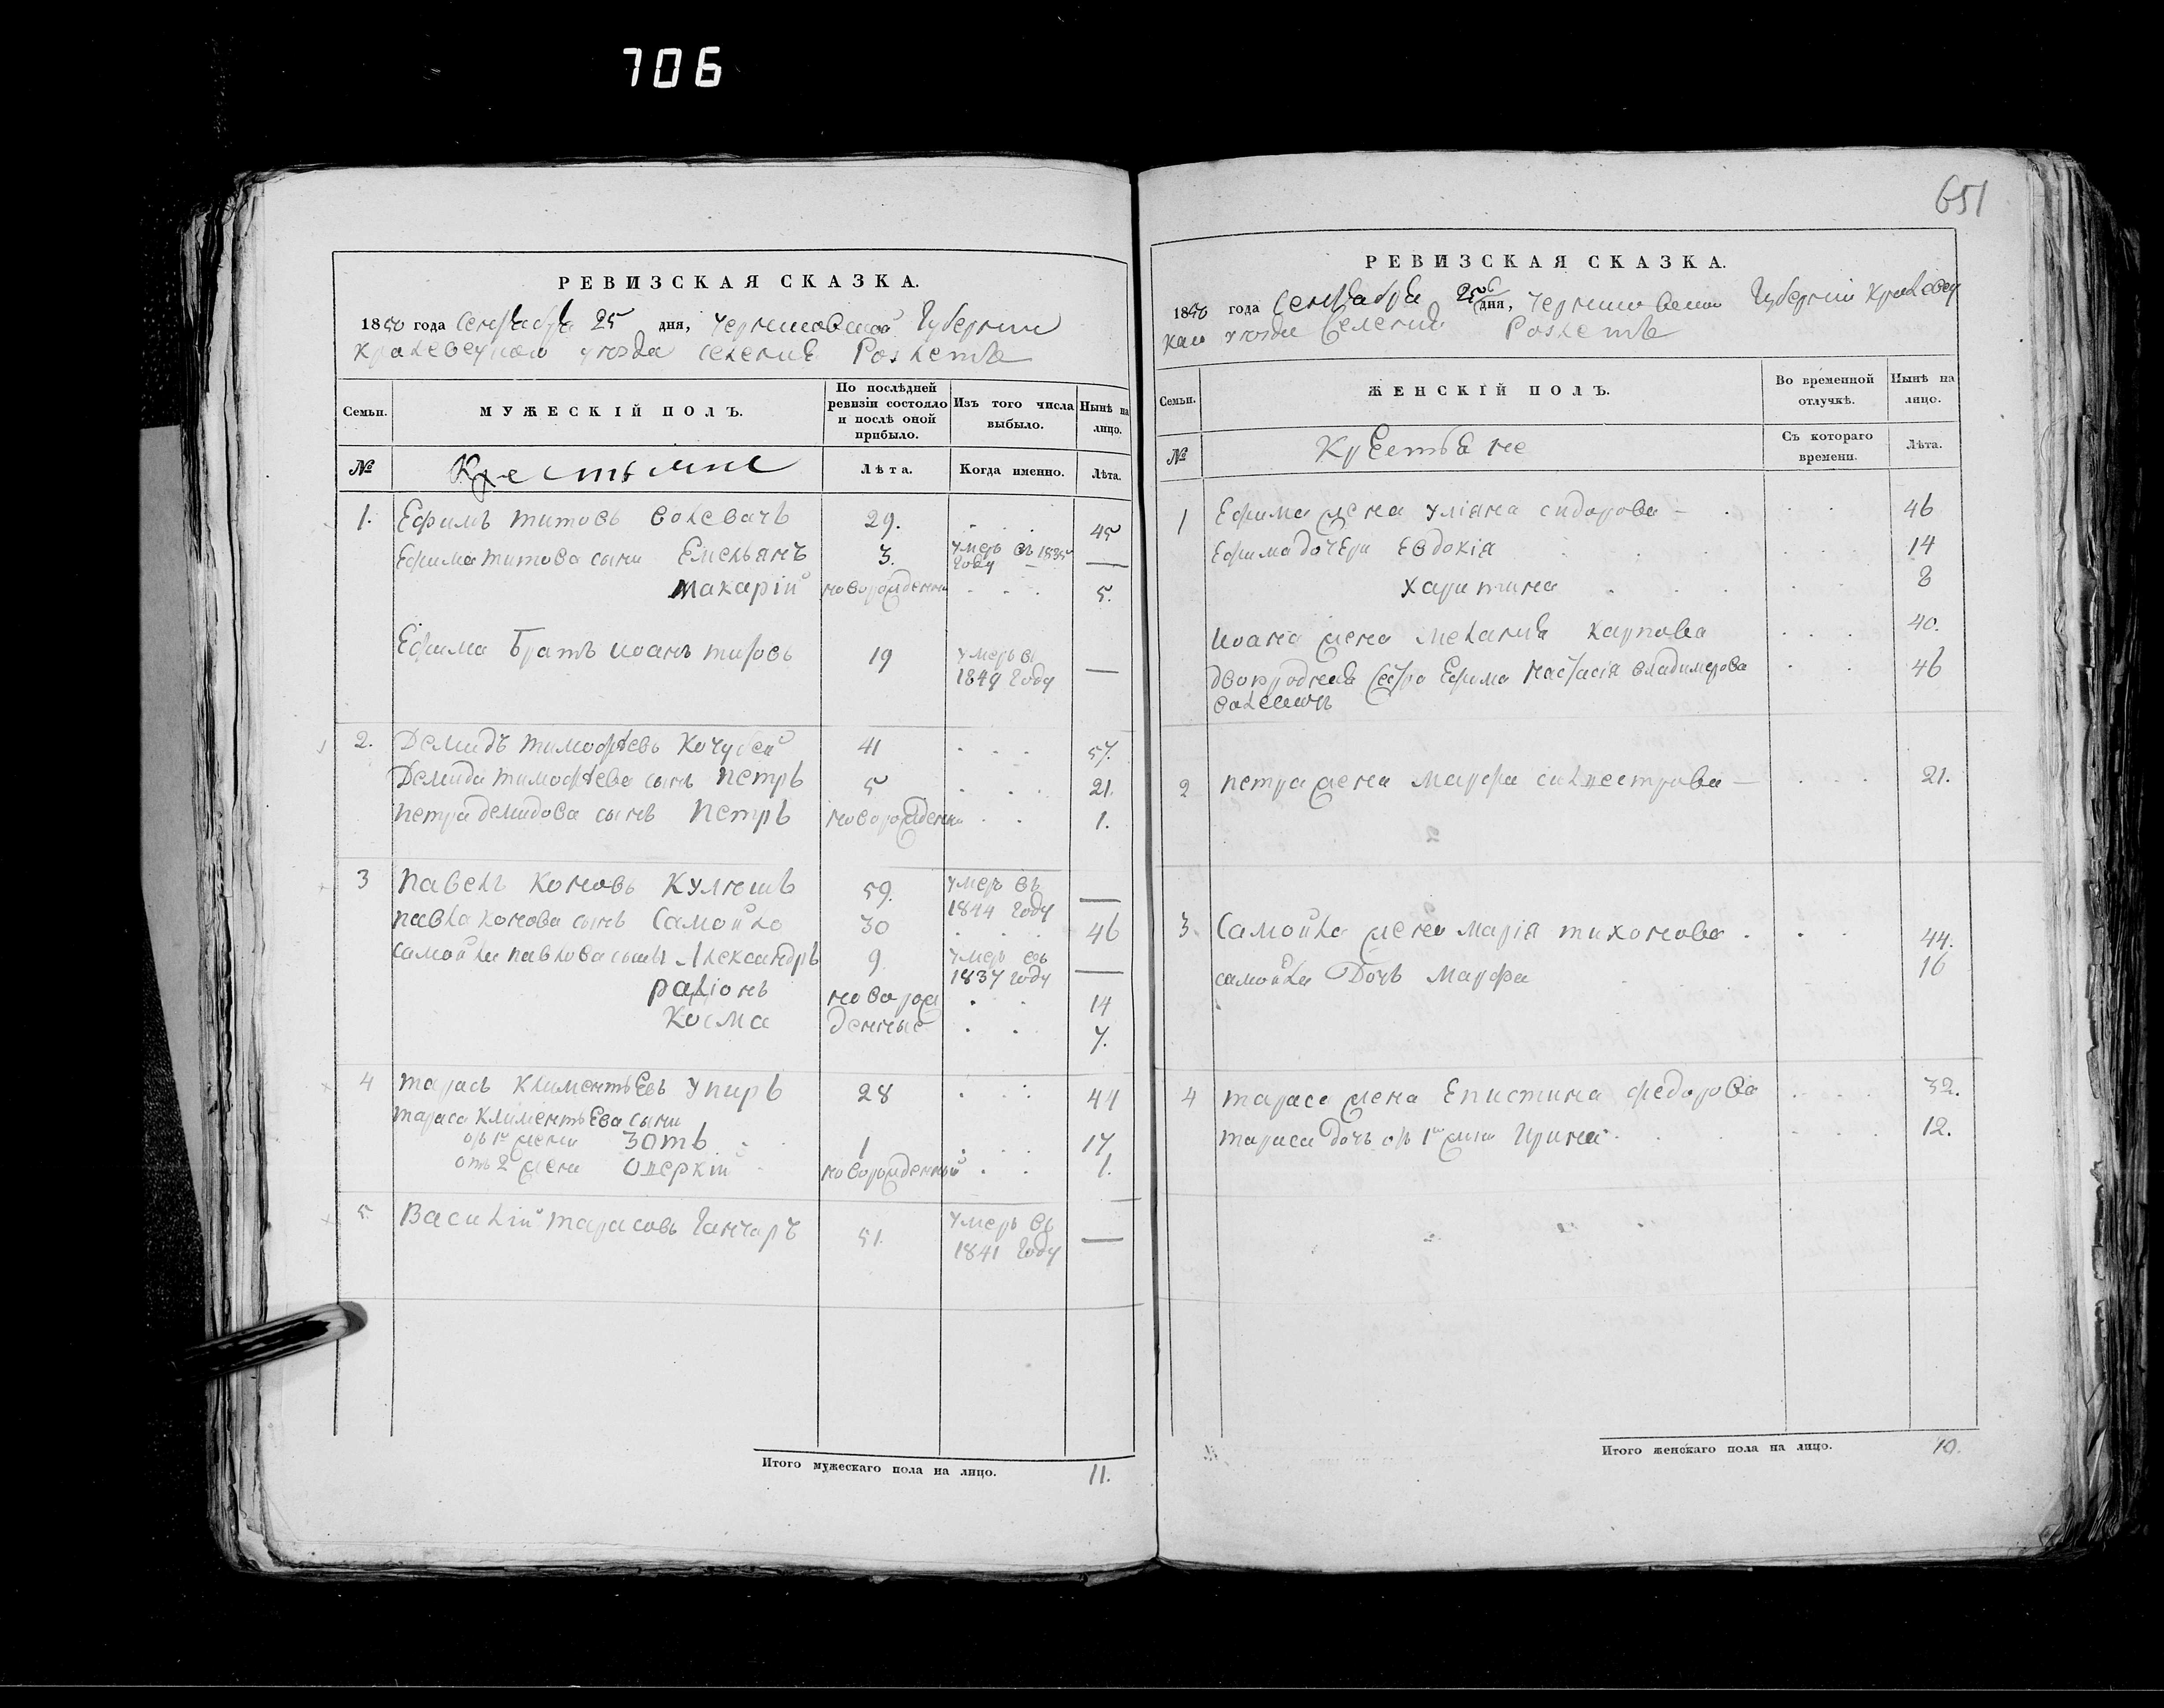 706
651
РЕВИЗСКАЯ СКАЗКА.
1850 года Сентября 25 дня, Черниговской Губернии
Кролевецкаго уезда селения Розлетъ
Семьи.
МУЖЕСКІЙ ПОЛЪ.
По послѣдней ревизіи состояло и послѣ оной прибыло.
Изъ того числа выбыло.
Нынѣ на лицо.
№
Крестьяне
Лѣта.
Когда именно.
Лѣта.
1. Ефимъ Титовъ 29. 45
Ефима Титова сыны Емельянъ 3. умеръ въ 1835 году —
Макарій новорожденный 5.
Ефима Братъ Иоанъ Титовъ 19 умеръ въ 1849 году —
2. Демидъ Тимофѣевъ Кочубей 41 57.
Демида Тимофѣева сынъ Петръ 5 21.
Петра Демидова сынъ Петръ новорожденный 1.
3 Павелъ Кононовъ Кулѣшъ 59. умеръ въ 1844 году —
Павла Конова сынъ Самойло 30 46
Самойла Павлова сыны Александръ 9. умеръ въ 1837 году —
Радіонъ новорож 14
Косма денные 7.
4 Тарасъ Климентьевъ Упиръ 28 44
Тараса Климентьева сыны
отъ 1й жены Зотъ 1 17
отъ 2 жены новорожденный 1.
5. Василій Тарасовъ Ганчаръ 51. умеръ въ 1841 году —
Итого мужескаго пола на лицо. 11.
РЕВИЗСКАЯ СКАЗКА.
1850 года Сентября 25 дня, Черниговской Губерніи Кролевец
каго уезда Селения Розлетъ
Семьи.
ЖЕНСКІЙ ПОЛЪ.
Во временной отлучкѣ.
Нынѣ на лицо.
№
Крестьяне
Съ котораго времени.
Лѣта.
1 Ефима жена Уліяна Сидорова 46
Ефима дочери Евдокія 14
Харитина 8
Иоана жена Меланія Карпова 40.
двоюродная сестра Ефима Настасія Владимерова 46
2 Петра жена Марфа Силвестрова 21.
3. Самойла жена Марія Тихонова 44.
Самойла Дочь Марфа 16
4 Тараса жена Епистина Федорова 32.
Тараса дочь отъ 1й жены Ирина 12.
Итого женскаго пола на лицо. 10.